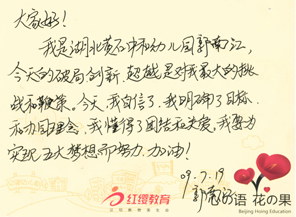 大家好！
我是湖北黄石中和幼儿园郭南江，
今天的破局创新，超越是对我最大的挑
战和鞭策。今天，我自信了，我明确了目标
和办园理念，我懂得了团结和关爱，我要为
实现五大梦想而努力，加油！
09.7.19
郭南江
红缨教育
の语 花の果
Beijing Hong Education